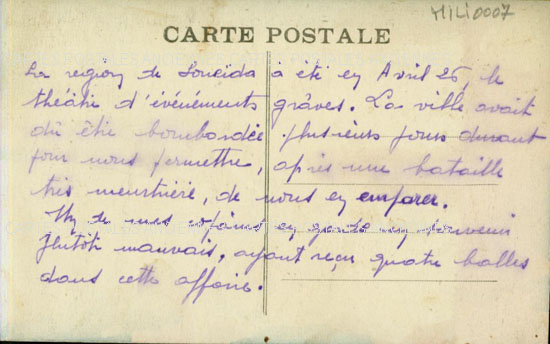 MILI0007
CARTE POSTALE
La région de Soueïda à été en Avril 26, le
théâtre d'événements grâves. La ville avait
dû être bombardée plusieurs jours durant
pour nous permettre, après une bataille
très meurtrière, de nous en emparer.
Un de mes copains en garde un souvenir
plutôt mauvais, ayant reçu quatre balles
dans cette affaire.